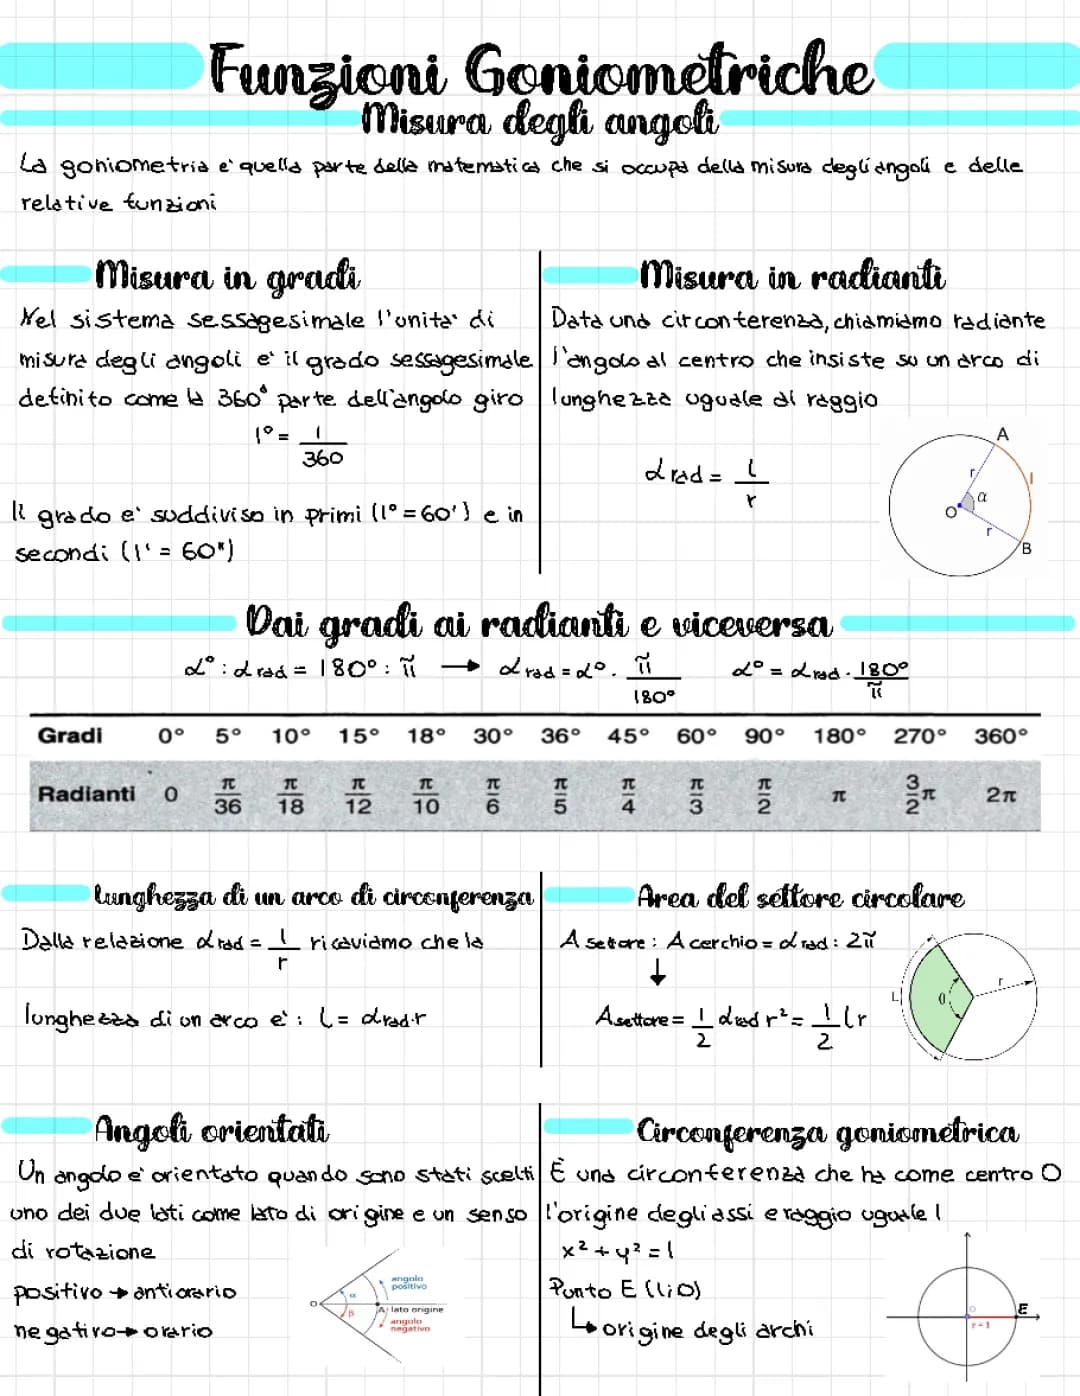 Funzioni Goniometriche
Misura degli angoli
La goniometria e' quella parte della matematica che si occupa della misura degli angoli e delle
relative funzioni
Misura in gradi
Nel sistema sessagesimale l'unita' di
misura degli angoli e' il grado sessagesimale
definito come la 360ª parte dell'angolo giro
1° = 1/360
Il grado e' suddiviso in primi (1° = 60') e in
secondi (1' = 60")
Misura in radianti
Data una circonferenza, chiamiamo radiante
l'angolo al centro che insiste su un arco di
lunghezza uguale al raggio
α rad = l/r
A
r
l
α
O
r
B
Dai gradi ai radianti e viceversa
α° : α rad = 180° : π → α rad = α° · π/180° α° = α rad · 180°/π
Gradi 0° 5° 10° 15° 18° 30° 36° 45° 60° 90° 180° 270° 360°
Radianti 0 π/36 π/18 π/12 π/10 π/6 π/5 π/4 π/3 π/2 π 3/2π 2π
Lunghezza di un arco di circonferenza
Dalla relazione α rad = l/r ricaviamo che la
lunghezza di un arco e' : l = α rad · r
Area del settore circolare
A settore : A cerchio = α rad : 2π
↓
A settore = 1/2 α rad r² = 1/2 l r
L
θ
r
Angoli orientati
Un angolo e' orientato quando sono stati scelti
uno dei due lati come lato di origine e un senso
di rotazione
positivo → antiorario
negativo → orario
angolo
positivo
α
O
β
A
lato origine
angolo
negativo
Circonferenza goniometrica
È una circonferenza che ha come centro O
l'origine degli assi e raggio uguale 1
x² + y² = 1
Punto E (1;0)
↳ origine degli archi
O
E
r=1